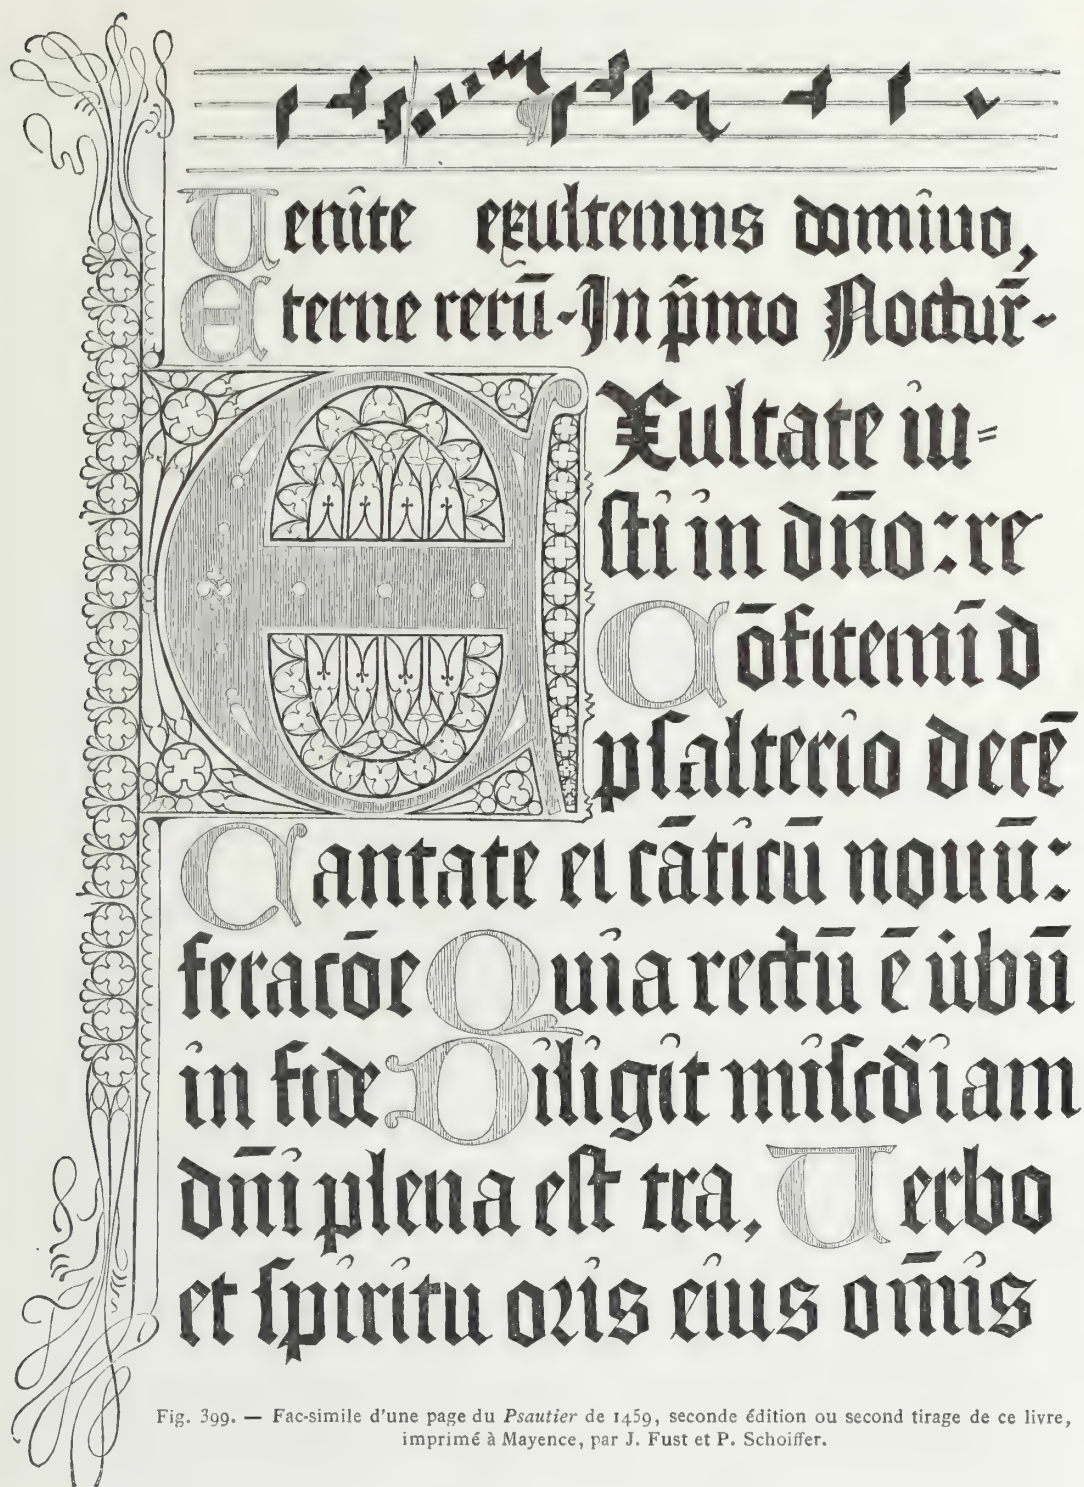 Uenite exultemus domino,
Eterne rerū-In p̄mo Noctur̄-
EXultate iu=
ſti in dn̄o: re
Cōfitemī d
pſalterio decē
Cantate ei cāticū nouū:
feracōe Quia rectū ē ūbū
in fide Diligit miſcd̄iam
dn̄i plena eſt tra, Uerbo
et ſpiritu oꝛis eius om̄is
Fig. 399. — Fac-simile d'une page du Psautier de 1459, seconde édition ou second tirage de ce livre,
imprimé à Mayence, par J. Fust et P. Schoiffer.